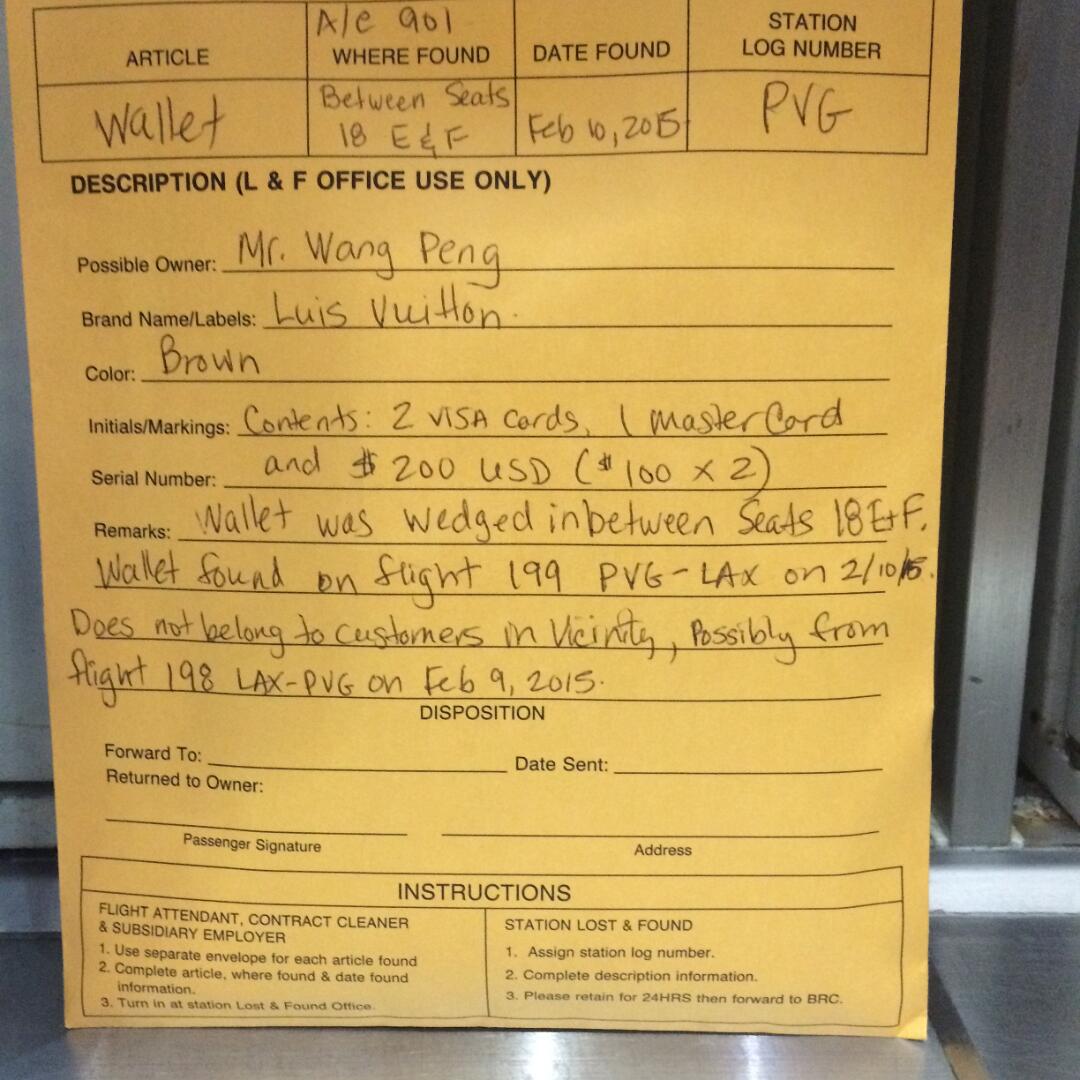 A/C 901
ARTICLE WHERE FOUND DATE FOUND STATION LOG NUMBER
Wallet Between Seats 18 E & F Feb 10, 2015 PVG
DESCRIPTION (L & F OFFICE USE ONLY)
Possible Owner: Mr. Wang Peng
Brand Name/Labels: Luis Vuitton.
Color: Brown
Initials/Markings: Contents: 2 VISA Cards, 1 MasterCard
Serial Number: and $200 USD ($100 x 2)
Remarks: Wallet was wedged inbetween Seats 18E+F.
Wallet found on flight 199 PVG-LAX on 2/10/15.
Does not belong to customers in Vicinity, Possibly from
flight 198 LAX-PVG on Feb 9, 2015.
DISPOSITION
Forward To: Date Sent:
Returned to Owner:
Passenger Signature Address
INSTRUCTIONS
FLIGHT ATTENDANT, CONTRACT CLEANER
& SUBSIDIARY EMPLOYER
1. Use separate envelope for each article found
2. Complete article, where found & date found
information.
3. Turn in at station Lost & Found Office.
STATION LOST & FOUND
1. Assign station log number.
2. Complete description information.
3. Please retain for 24HRS then forward to BRC.